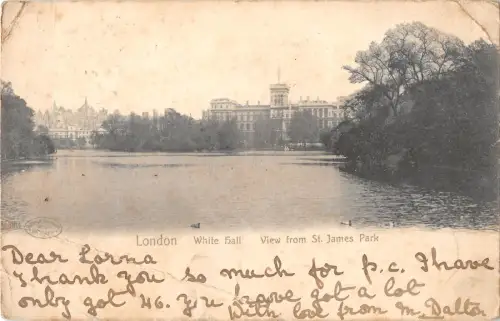 London White Hall View from St. James Park
Dear Lorna
Thank you so much for p.c. I have
only got 46. If you have got a lot
With love from M. Dalton